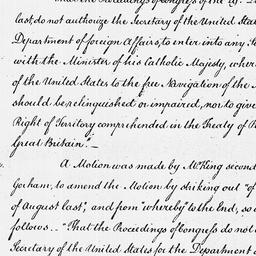 last, do not authorize the Secretary of the United Sta
Department of foreign Affairs, to enter into any
with the Minister of his Catholic Majesty, wher
of the United States to the free Navigation of the
should be relinquished or impaired, nor to give
Right of Territory comprehended in the Treaty of
Great Britain." —
A Motion was made by Mr King second
Gorham, to amend the Motion by striking out "of
of August last", and from "whereby" to the End, so
follows.. "That the Proceedings of Congress do not
Secretary of the United States for the Department